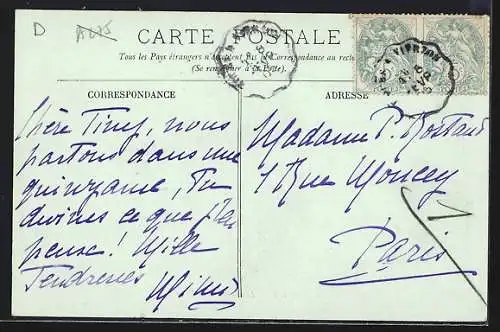 D
CARTE POSTALE
Tous les Pays étrangers n'acceptent pas la Correspondance au recto
(Se renseigner à la Poste)
VIERZON
CORRESPONDANCE
Chère Tiny, nous
partons dans une
quinzaine, Tu
devines ce que j'en
pense! Mille
Tendresses
Mimi
ADRESSE
Madame P. Rostand
1 Rue Moncey
Paris